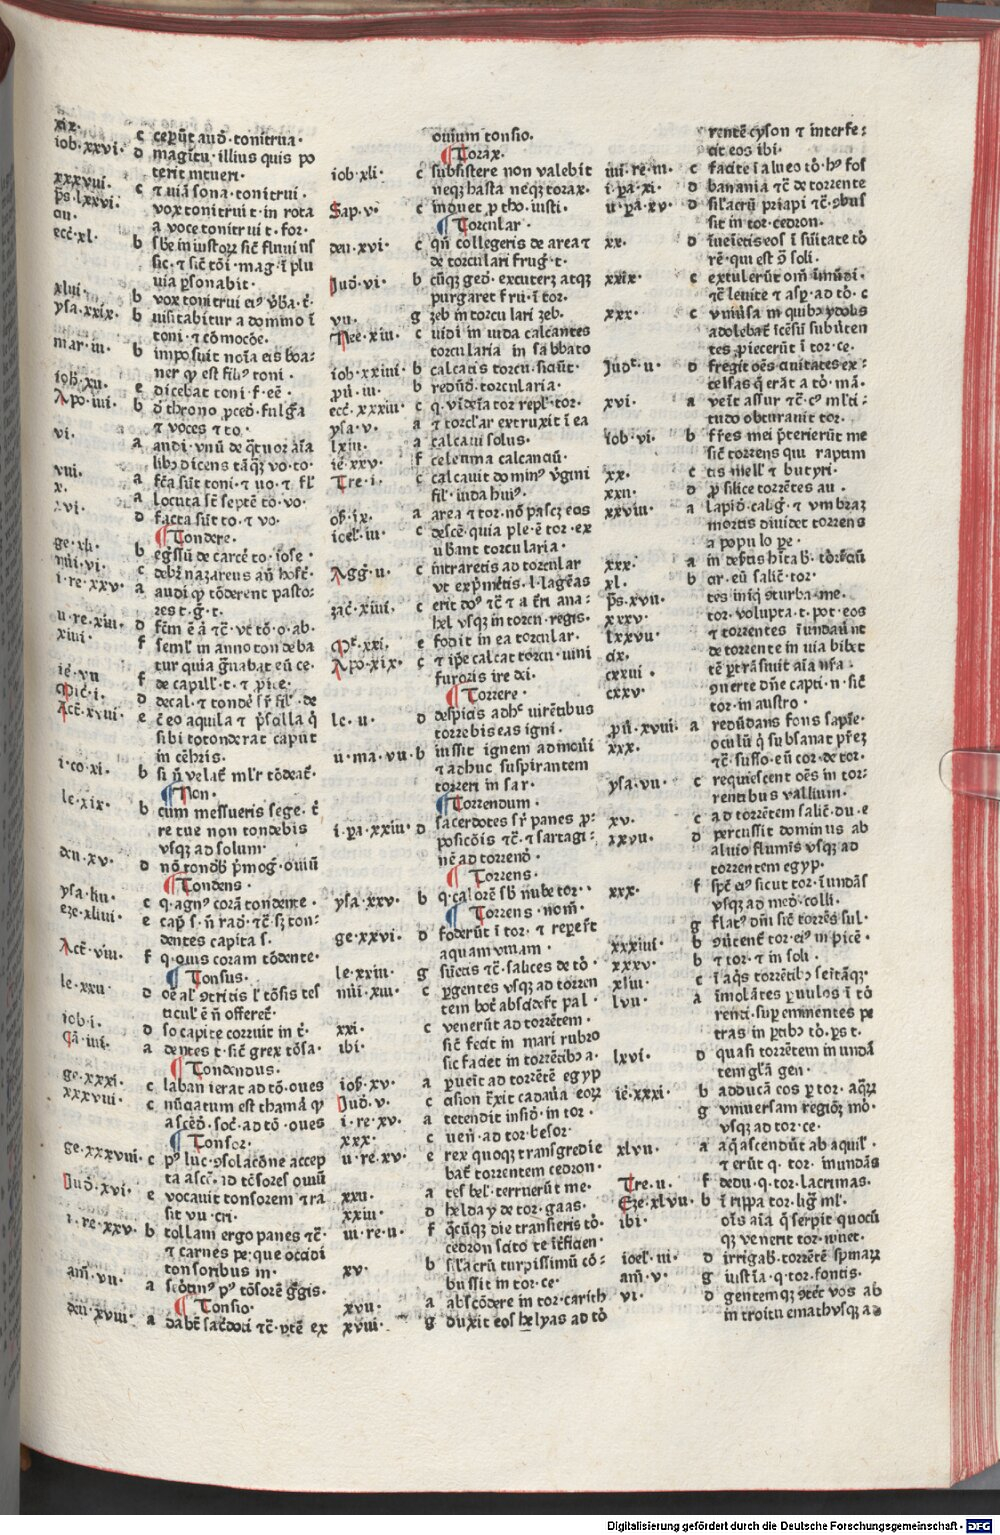 xix. c ceperūt aud̄. tonitrua.
iob. xxvi. d magitu. illius quis po
terit intueri.
xxxvii. c ⁊ uiā sona. tonitrui.
ps. lxxvi. vox tonitrui t. in rota
au. a voce tonitrui t. for.
ecc̄. xl. b sbē iniustoꝝ sic̄ fluuius
sic. ⁊ sic̄ tōi. mag. ī plu
uia p̱sonabit.
xlvi. b vox tonitrui eiꝰ v̄ba. t̄.
ysa. xxix. b uisitabitur a domino ī
toni. ⁊ cōmocōe.
mar. iii. b imposuit noīa eis boa:
ner qͥ est filiꝰ toni.
ioh̄. xii. e dicebat toni. f. eē.
Apo. iiii. b d̄ throno p̱ced. fulg̃a
⁊ voces ⁊ to.
vi. a audi. vnū de q̄tuor aīa
libꝫ dicens tāqꝫ vo. to.
viii. a fc̄a sūt toni. ⁊ uo. ⁊ fl̄
x. a locuta sc̄ septē to. vo.
xvi. d facta sūt to. ⁊ vo.
¶ Tondere.
ge. xli. b eg̃ssū de carcē to. iose.
nūi. vi. c debꝫ nazareus an̄ host̄.
i. re. xxv. a audi qͥ tōderent pasto:
res t. g̃. t.
ii. re. xiiii. d fc̄m ē ā ⁊c̄. vt tō. o. ab.
xiiii. f seml̄ in anno tondeba
tur quia g̃uabat eū ce.
ie. vii f de capill̄. t. ⁊ p̱ije.
Mic̄. i. d decal. ⁊ tondē sr̄ fil̄. de
Act̄. xviii. e c̄eo aquila ⁊ p̄scilla q̄
sibi totonderat caput
in cēhris.
i. co. xi. b si n̄ velat̄ ml̄r tōdeat̄.
¶ Non.
le. xix. b cum messueris sege. t̄
re tue non tondebis
vsqꝫ ad solum.
deu. xv. d nō tondb̄ p̄mog̃. ouiū
¶ Tondens.
ysa. liii. c q. agnꝰ corā tondente.
eze. xliiii. e cap̄ s. n̄ rad. ⁊c̄. sꝫ ton:
dentes capita s.
Act̄. viii. f q. ouis coram tōdente.
¶ Tonsus.
le. xxii. d oē al̄ ꝯtritis l̄ tōsis tes
ticul̄ ē n̄ offeret̄.
iob. i. d so capite corruit in t̄.
cā. iiii. a dentes t. sic̄ grex tōsa.
¶ Tondendus.
ge. xxxi. c laban ierat ad tō. oues
xxxviii. c nūciatum est thamā qͥ
ascēd. soc̄. ad tō. oues
¶ Tonsor.
ge. xxxviii. c pꝰ luc̄. ꝯsolacōne accep
ta asc̄. id tōsores ouiū
Jud̄. xvi. e vocauit tonsorem ⁊ ra
sit vii. cri.
i. re. xxv. b tollam ergo panes ⁊c̄.
⁊ carnes pe: que occidi
tonsoribus m.
am̄. vii. a s. pꝰ tōsorē g̃gis.
¶ Tonsio.
deu. xviii. a dabt̄ sac̄doti ⁊c̄. ꝑtē ex
ouium tonsio.
¶ Torax.
iob. xli. c subsistere non valebit
neqꝫ hasta neqꝫ torax.
Sap. v. c induet p̱ tho. iusti.
¶ Torcular.
deu. xvi. c qn̄ collegeris de area ⁊
de torculari frug. t.
Jud̄. vi. b cūqꝫ ged. excuterꝫ atqꝫ
purgaret fru. ī tor.
vii. g zeb in torculari zeb.
Nee. xiii. c uidi in iuda calcantes
torcularia in sabbato
iob. xxiiii. b calcatis torcu. siciūt.
pū. iii. b redūd. torcularia.
ecc̄. xxxiii. c q. vīdeīa tor repl̄. tor.
ysa. v. a ⁊ torcl̄ar extruxit ī ea
lxiii. a calcaui solus.
ie. xxv. f celeuma calcanciū.
Tre. i. c calcauit dominꝰ v̄gini
fil̄. iuda huiꝰ.
oh̄. ix. a area ⁊ tor. nō pascꝫ eos
ioel̄. iii. c descē. quia ple. ē tor. ex
ubant torcularia.
Agg̃. ii. c intraretis ad torcular
vt exp̄metis. l. lagēas
zac̄. xiiii. c erit doꝰ ⁊c̄ ⁊ a t̄ri ana:
hel vsqꝫ in torcu. regis.
Mt̄. xxi. e fodit in ea torcular.
Apo. xix. c ⁊ ip̄e calcat torcu. uini
furoris ire dei.
¶ Torrere.
le. ii. d despicis adhc̄ uirētibus
torrebis eas igni.
ii. ma. vii. b iussit ignem admoui
⁊ adhuc suspirantem
torreri in sar.
¶ Torrendum.
i. pa. xxiii. d sacerdotes sr̄ panes p̱:
posicōis ⁊c̄. ⁊ sartagi:
nē ad torrend̄.
¶ Torrens.
ysa. xxv. b q. calorē sb̄ nube tor.
¶ Torrens. nom̄.
ge. xxvi. d foderūt ī tor. ⁊ reperēt
aquam viuam.
le. xxiii. g sūetis ⁊c̄. salices de tō.
nūi. xiii. c p̱gentes vsqꝫ ad torren
tem bot̄ abscider̄t pal.
xxi. c venerūt ad torrētem.
ibi. sic̄ fecit in mari rubro
sic faciet in torrētibꝫ a.
ioh̄. xv. a p̱ueit ad torrētē egyp
Jud̄. v. c cision t̄xit cadau̅a eoꝝ
i. re. xv. a tetendit insid. in tor.
xxx. c uen̄. ad tor. besor.
ii. re. xv. e rex quoqꝫ transgredie
bat̄ torrentem cedron.
xxii. a tes bel. terruerūt me.
xxiii. d helday de tor. gaas.
iii. re. ii. f q̄cūqꝫ die transieris tō.
cedron scito te īt̄ficien.
xv. b sil̄acrū turpissimū cō:
bussit in tor. ce.
xvii. a abscōdere in tor. carith
xviii. g duxit eos helyas ad tō
rentē cyson ⁊ interfe:
cit eos ibi.
iiii. re. iii. c facite ī alueo tō. hꝰ fos
i. pa. xi. d banania ⁊c̄ de torrente
ii. pa. xv. d sil̄acrū priapi ⁊c̄. ꝯbus
sit in tor. cedron.
xx. d īueietis eos ī sūitate tō
rē. qui est ꝯ̄ soli.
xxix. c extulerūt om̄ īmūdi.
⁊c̄ leuite ⁊ asp. ad tō. c
xxx. c vniūsa in quibꝫ ydolis
adolebat̄ īcēsū subūten
tes p̱iecerūt ī tor. ce.
Judt̄. ii. d fregit oēs ciuitates ex:
celsas q̄ erāt a tō. mā.
xvi. a veīt assur ⁊c̄. cꝰ ml̄ti:
tudo obturauit tor.
iob. vi. b fr̄es mei p̄terierūt me
sic̄ torrens qui raptim
xx. c tis mell̄ ⁊ butyri.
xxii. d p̱ silice torrētes au.
xxviii. a lapid. calig̃. ⁊ vmbraꝫ
mortis diuidet torrens
a populo pe.
xxx. a in dep̄tis hītab. tōrētiū
xl. b cir. eū salic̄. tor.
ps. xvii. tes iniq̄ ꝯturba. me.
xxxv. tor. volupta. t. pot. eos
lxxvii. ⁊ torrentes īundaūnt
cix. de torrente in uia bibet
cxxiii. tē p̱trāsiuit aīa nr̄a.
cxxv. ꝯuerte dn̄e capti. n. sic̄
tor. in austro.
pū. xviii. a redūdans fons sapīe.
xxx. oculū q̄ subsanat pr̄eꝫ
⁊c̄. suffo. eū cor. de tor.
ysa. vii. c requiescent oēs in tor:
rentibus vallium.
xv. c ad torrētem salic̄. du. e
xxvii. d percussit dominus ab
alueo flumīs vsqꝫ ad
torrentem egyp.
xxx. f spc̄ eiꝰ sicut tor. īundās
vsqꝫ ad med. colli.
g flatꝰ dn̄i sic̄ torrēs sul.
xxxiiii. b ꝯūtent̄ tor. eiꝰ in picē.
xxxv. b ⁊ tor. ⁊ in soli.
xliii. c ī aq̄s torrētibꝫ seītāqꝫ.
lvii. a īmolātes p̱uulos ī tō
renti. suꝑ eminentes pe
tras in p̱tibꝫ tō. ꝑs t.
lxvi. d quasi torrētem inundā
tem gl̄ā gen.
ie. xxxi. b adducā eos ꝑ tor. aq̄ꝝ
g vniuersam regiōꝫ mō.
vsqꝫ ad tor. ce.
xlvii. a aq̄ ascendūt ab aquil̄.
⁊ erūt q. tor. inundās
Tre. ii. f dedu. q. tor. lacrimas.
Eze. xlvii. b ī rippa tor. lig̃ ml̄.
ibi. oīs aīa q̄ serpit quocū
qꝫ venerit tor. uiuet.
ioel̄. iii. d irrigab. torrētē spinaꝝ
am̄. v. g iustīa. q. tor. fortis.
vi. d gentemqꝫ ꝯtēt̄ vos ab
introitu emath vsqꝫ ad
Digitalisierung gefördert durch die Deutsche Forschungsgemeinschaft - DFG